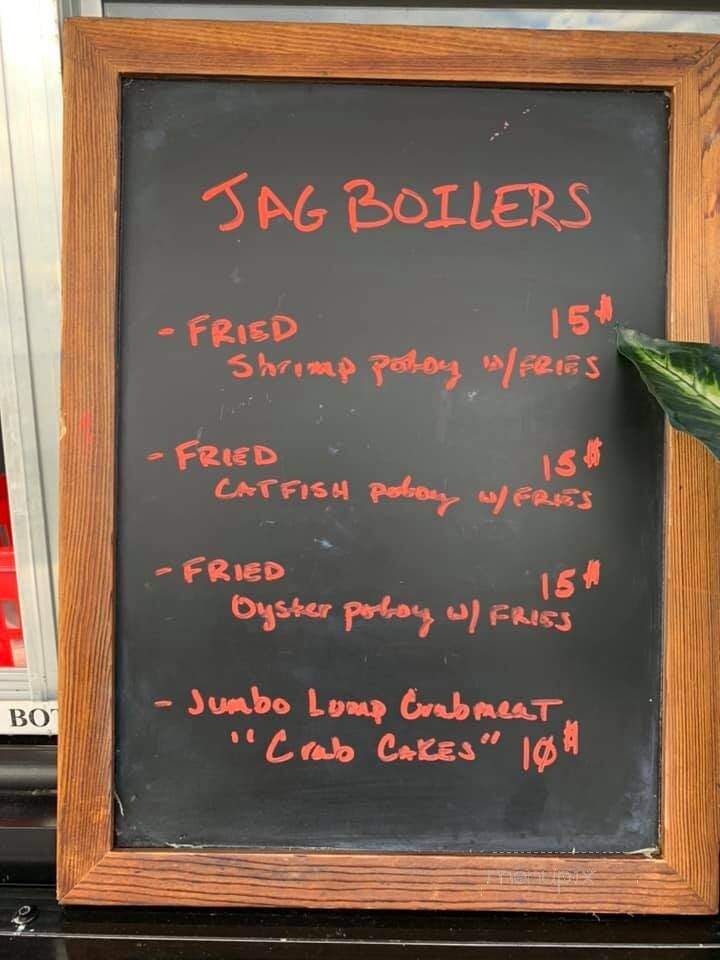 JAG BOILERS
- FRIED 15$
Shrimp poboy w/ FRIES
- FRIED 15$
CATFISH poboy w/ FRIES
- FRIED 15$
Oyster poboy w/ FRIES
- Jumbo Lump Crabmeat
"Crab CAKES" 10$
BOT
menupix